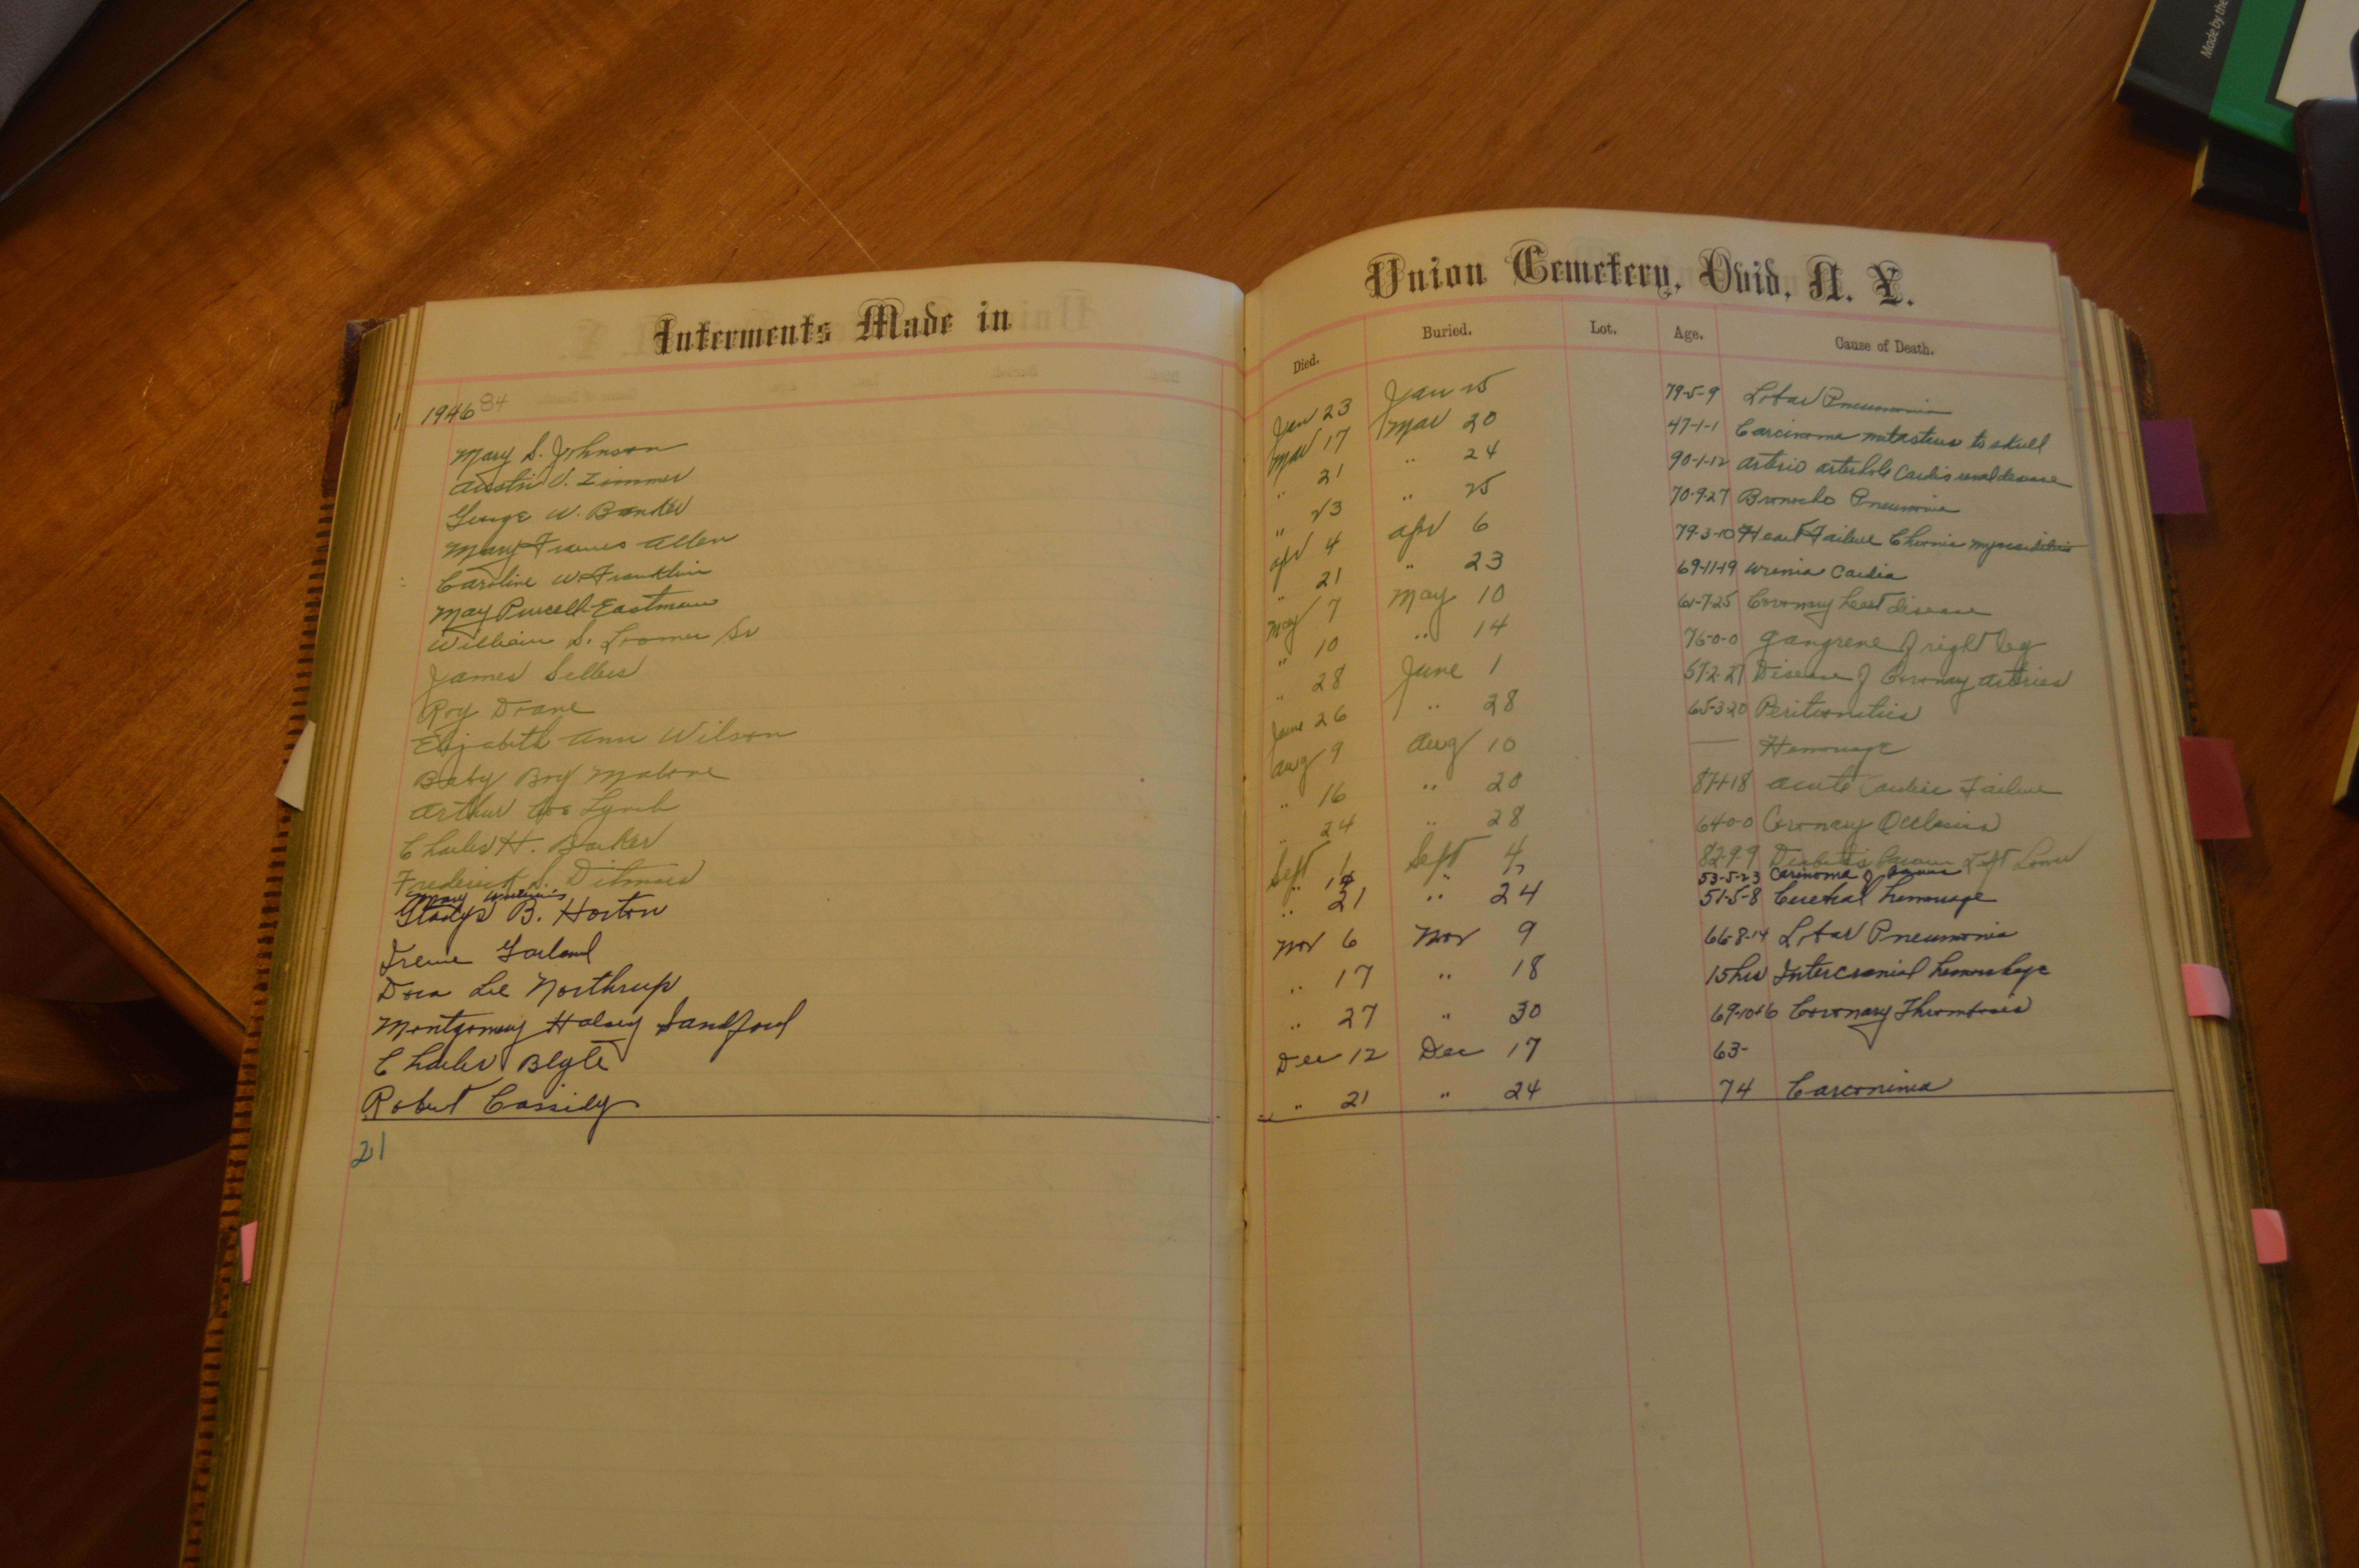 Made by the
Interments Made in
1946 84
Mary S. Johnson
Austin V. Zimmer
George W. Banker
Mary Frances Allen
Caroline W. Franklin
May Purcell-Eastman
William S. Loomer Sr
James Sellers
Roy Doane
Elizabeth Ann Wilson
Baby Boy Malone
Arthur Coe Lynch
Charles H. Barker
Frederick S. Ditmars
Mary
Gladys B. Horton
Irene Garland
Dora Lee Northrup
Montgomery Halsey Sandford
Charles Blyte
Robert Cassidy
21
Union Cemetery, Ovid, N. Y.
Died. Buried. Lot. Age. Cause of Death.
Jan 23 Jan 25 79-5-9 Lobar Pneumonia
Mar 17 Mar 20 47-1-1 Carcinoma to skull
" 21 " 24 90-1-12 Arterio
" 23 " 25 70-9-27 Broncho Pneumonia
Apr 4 Apr 6 79-3-10 Heart Failure Chronic
" 21 " 23 69-11-19 Uremia Cardia
May 7 May 10 61-7-25 Coronary heart disease
" 10 " 14 76-0-0 Gangrene of right leg
" 28 June 1 57-2-27 Disease of Coronary Arteries
June 26 " 28 65-3-20
Aug 9 Aug 10 —
" 16 " 20 Acute Failure
" 24 " 28 64-0-0 Coronary
Sept 1 Sept 4 82-9-9 Left
" 14 " 17 53-5-23 of
" 21 " 24 51-5-8 hemorrage
Nov 6 Nov 9 66-8-14 Lobar Pneumonia
" 17 " 18 15 hrs Intercranial
" 27 " 30 Coronary Thrombosis
Dec 12 Dec 17 63-
" 21 " 24 74 Carconimia